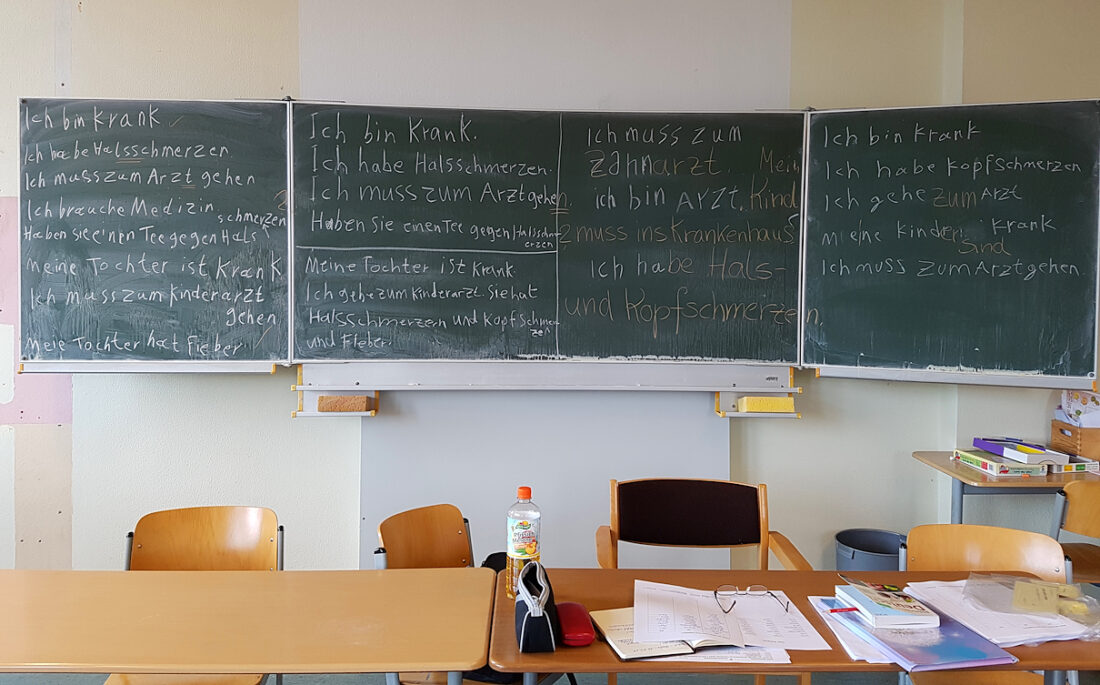 Ich bin krank
Ich habe Halsschmerzen.
Ich muss zum Arzt gehen
Ich brauche Medizin
schmerzen
Haben sie einen Tee gegen Hals
Meine Tochter ist Krank
Ich muss zum Kinderarzt
gehen
Meie Tochter hat Fieber
Ich bin Krank.
Ich habe Halsschmerzen.
Ich muss zum Arzt gehen.
Haben Sie einen Tee gegen Halsschm
erzen
Meine Tochter ist Krank.
Ich gehe zum Kinderarzt. Sie hat
Halsschmerzern und Kopfschmer
zen
und Fieber.
Ich muss zum
zahnarzt. Mein
ich bin Arzt. Kind
muss ins Krankenhaus
Ich habe Hals-
und Kopfschmerzen.
Ich bin krank
Ich habe kopfschmerzen
Ich gehe zum Arzt
Meine kinder krank
sind
Ich muss zum Arzt gehen.